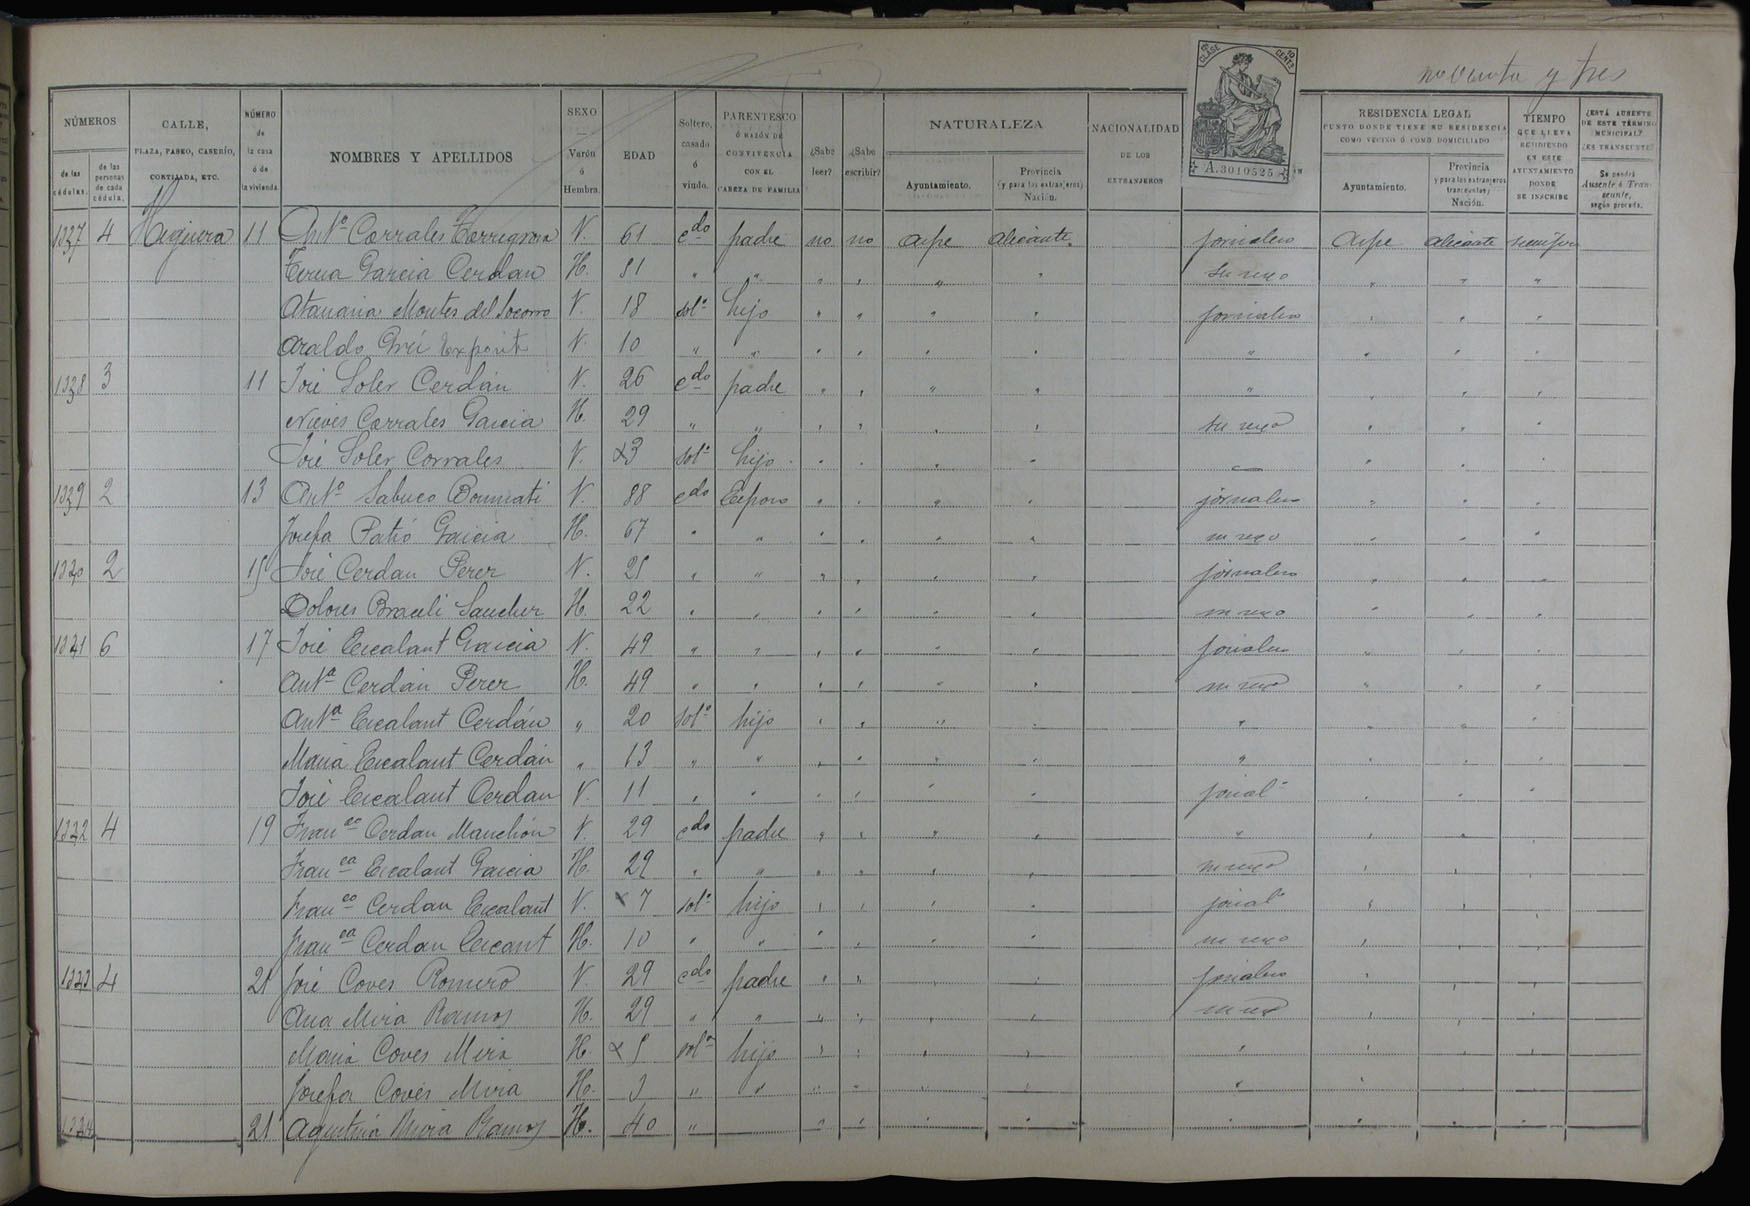 noventa y tres
12ª CLASE 10 CENTS
A.3010525
NÚMEROS
de las cédulas.
de las personas de cada cédula.
CALLE,
PLAZA, PASEO, CASERÍO,
CORTIJADA, ETC.
NÚMERO
de
la casa
ó de
la vivienda
NOMBRES Y APELLIDOS
SEXO
Varón
ó
Hembra.
EDAD
Soltero,
casado
ó
viudo.
PARENTESCO
Ó RAZÓN DE
CONVIVENCIA
CON EL
CABEZA DE FAMILIA
¿Sabe
leer?
¿Sabe
escribir?
NATURALEZA
Ayuntamiento.
Provincia
(y para los extranjeros)
Nación.
NACIONALIDAD
DE LOS
EXTRANJEROS
RESIDENCIA LEGAL
PUNTO DONDE TIENE SU RESIDENCIA
COMO VECINO Ó COMO DOMICILIADO
Ayuntamiento.
Provincia
y para los extranjeros
transeuntes)
Nación.
TIEMPO
QUE LLEVA
RESIDIENDO
EN ESTE
AYUNTAMIENTO
DONDE
SE INSCRIBE
¿ESTÁ AUSENTE
DE ESTE TÉRMINO
MUNICIPAL?
¿ES TRANSEUNTE?
Se pondrá
Ausente ó Tran-
seunte,
según proceda.
1327 4 Higuera 11 Antº Corrales Torregrosa V. 61 cdo padre no no Aspe Alicante jornalero Aspe Alicante
Teresa Garcia Cerdan H. 51 " " " " " " su sexo " " "
Atanasia Montes del Socorro V. 18 solº hijo " " " " jornalero " " "
Araldo Exposit V. 10 " " " " " " " " " "
1328 3 11 José Soler Cerdán V. 26 cdo padre " " " " " " " "
Nieves Corrales Garcia H. 29 " " " " " " su sexo " " "
José Soler Corrales V. x3 solº hijo " " " " " " "
1329 2 13 Antº Sabuco V. 88 cdo Esposo " " " " jornalero " " "
Josefa Patró Garcia H. 67 " " " " " " su sexo " " "
1330 2 15 José Cerdan Perez V. 25 " " " " " " jornalero " " "
Dolores Sanchez H. 22 " " " " " " su sexo " " "
1331 6 17 José Escalant Garcia V. 49 " " " " " " jornalero " " "
Antª Cerdán Perez H. 49 " " " " " " su sexo " " "
Antª Escalant Cerdán " 20 solº hijo " " " " " " " "
Maria Escalant Cerdán " 13 " " " " " " " " " "
José Escalant Cerdan V. 11 " " " " " " jorialº " " "
1332 4 19 Franco Cerdan Manchón V. 29 cdo padre " " " " " " " "
Franca Escalant Garcia H. 29 " " " " " " su sexo " " "
Franco Cerdan Escalant V. x7 solº hijo " " " " jorialº " " "
Franca Cerdan Escant H. 10 " " " " " " su sexo " " "
1333 4 21 José Coves Romero V. 29 cdo padre " " " " jornalero " " "
Ana Mira Ramos H. 29 " " " " " " su sexo " " "
Maria Coves Mira H. x5 solª hijo " " " " " " " "
Josefa Coves Mira H. 3 " " " " " " " " " "
1334 21 Agustina Mira Ramos H. 40 " " " " " " " " "